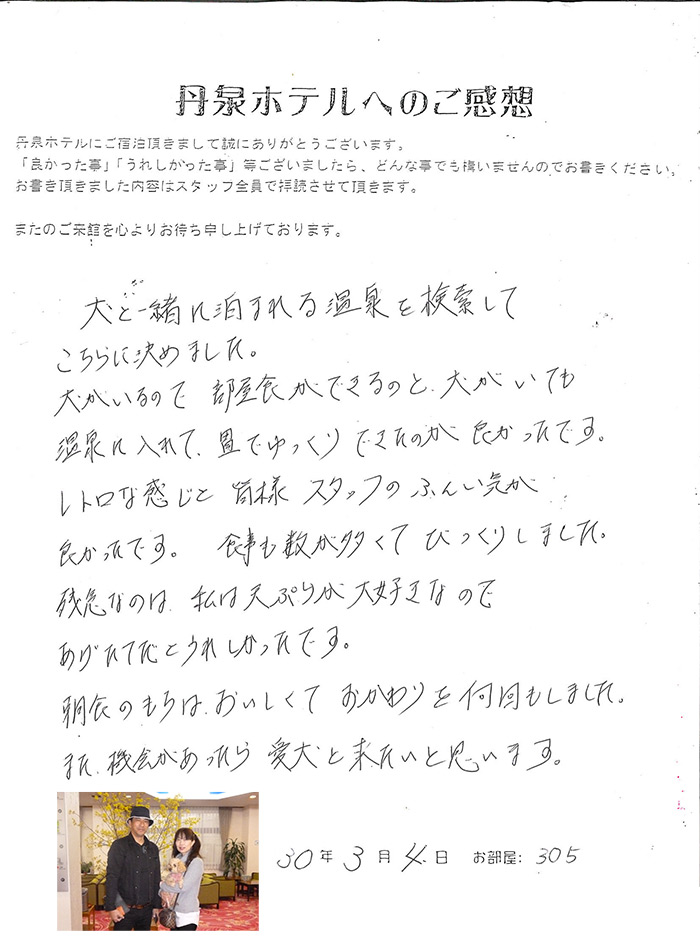 丹泉ホテルへのご感想
丹泉ホテルにご宿泊頂きまして誠にありがとうございます。
「良かった事」「うれしかった事」等ございましたら、どんな事でも構いませんのでお書きください。
お書き頂きました内容はスタッフ全員で拝読させて頂きます。
またのご来館を心よりお待ち申し上げております。
犬と一緒に泊まれる温泉を検索して
こちらに決めました。
犬がいるので 部屋食ができるのと、犬がいても
温泉に入れて、畳でゆっくりできたのが 良かったです。
レトロな感じと 皆様 スタッフの ふんい気が
良かったです。 食事も数が多くて びっくりしました。
残念なのは、私は天ぷらが大好きなので
あげたてだとうれしかったです。
朝食のもちは、おいしくて おかわりを何回もしました。
また、機会があったら 愛犬と来たいと思います。
30年 3月 4日 お部屋: 305